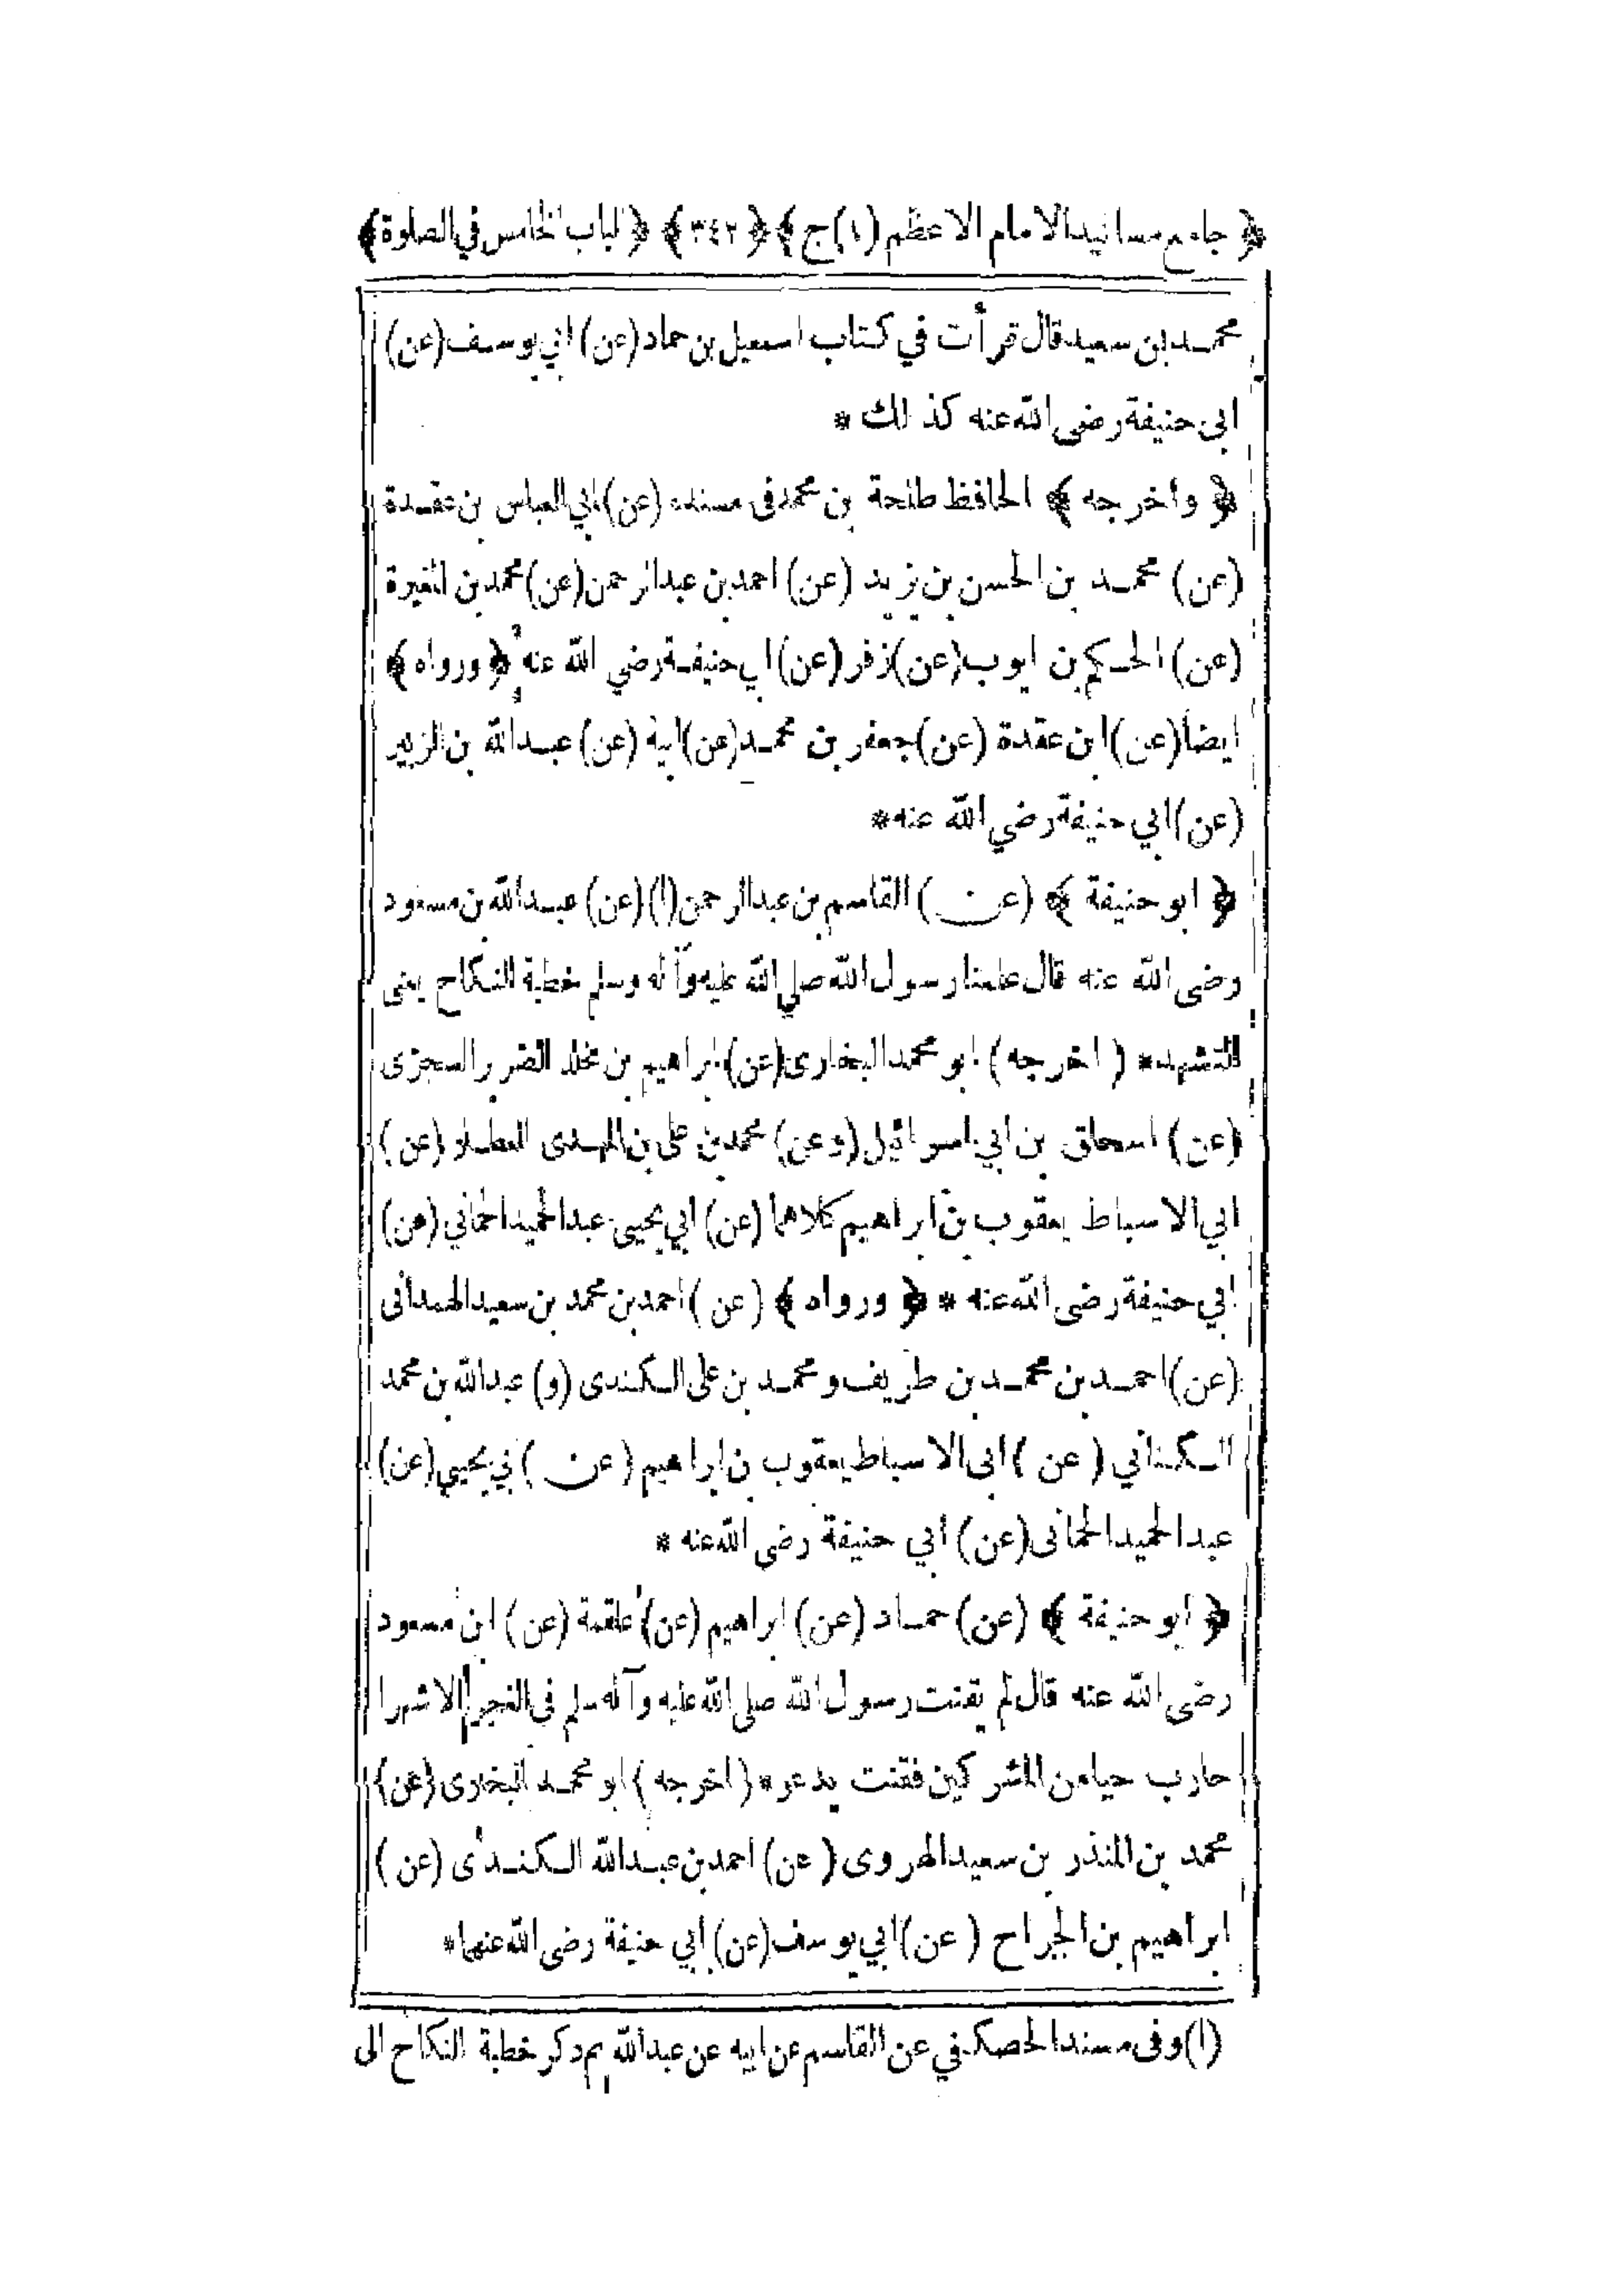 ﴿ جامع مسانيد الامام الاعظم (١) ج ﴾ ﴿ ٣٤٢ ﴾ ﴿ الباب الخامس في الصلوة ﴾
محمد بن سعيد قال قرأت في كتاب اسمعيل بن حماد (عن) ابي يوسف (عن)
ابى حنيفة رضى الله عنه كذلك *
﴿ وأخرجه ﴾ الحافظ طلحة بن محمد فى مسنده (عن) ابي العباس بن عقدة
(عن) محمد بن الحسن بن يزيد (عن) احمد بن عبد الرحمن (عن) محمد بن المغيرة
(عن) الحكم بن ايوب (عن) زفر (عن) ابي حنيفة رضي الله عنه ﴿ ورواه ﴾
ايضا (عن) ابن عقدة (عن) جعفر بن محمد (عن) ابيه (عن) عبد الله بن الزبير
(عن) ابي حنيفة رضي الله عنه *
﴿ ابو حنيفة ﴾ (عن) القاسم بن عبد الرحمن (١) (عن) عبد الله بن مسعود
رضى الله عنه قال علمنا رسول الله صلى الله عليه وآله وسلم خطبة النكاح يعنى
التشهد * (اخرجه) ابو محمد البخارى (عن) ابراهيم بن مخلد الضرير السجزى
(عن) اسحاق بن ابي اسرائيل (وعن) محمد بن على بن المهدى العطار (عن)
ابي الاسباط يعقوب بن ابراهيم كلاهما (عن) ابي يحيى عبد الحميد الحماني (عن)
ابي حنيفة رضى الله عنه * ﴿ ورواه ﴾ (عن) احمد بن محمد بن سعيد الهمدانى
(عن) احمد بن محمد بن طريف و محمد بن على الكندى (و) عبد الله بن محمد
الكناني (عن) ابى الاسباط يعقوب بن ابراهيم (عن) ابي يحيى (عن)
عبد الحميد الحمانى (عن) ابي حنيفة رضى الله عنه *
﴿ ابو حنيفة ﴾ (عن) حماد (عن) ابراهيم (عن) علقمة (عن) ابن مسعود
رضى الله عنه قال لم يقنت رسول الله صلى الله عليه وآله سلم فى الفجر الا شهرا
حارب حيا من المشركين فقنت يدعو * (اخرجه) ابو محمد البخارى (عن)
محمد بن المنذر بن سعيد الهروى (عن) احمد بن عبد الله الكندى (عن)
ابراهيم بن الجراح (عن) ابي يوسف (عن) ابي حنيفة رضى الله عنهما *
(١) وفى مسند الحصكفي عن القاسم عن ابيه عن عبد الله ثم ذكر خطبة النكاح الى